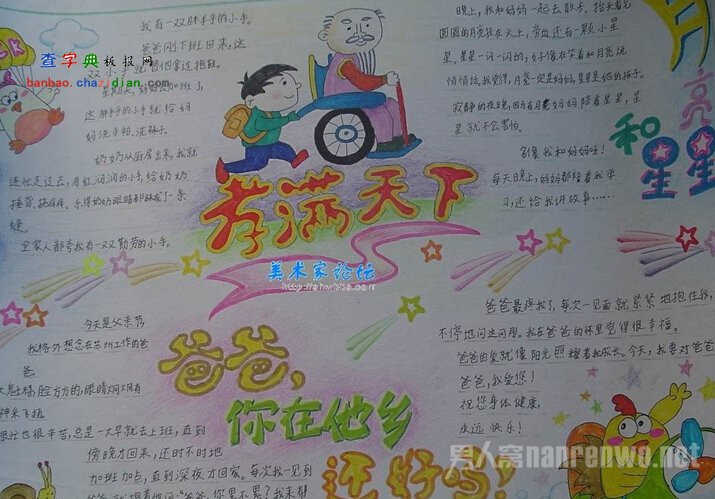 我有一双胖手手的小手。
爸爸刚下班回来，这
双小手就
给他拿过拖鞋。
查字典板报网
banbao.chazidian.com
这
胖手手的小手就给妈
妈洗手帕、洗袜子。
奶奶从厨房出来，我就
连忙走过去，用
的小手给奶奶
捶背、挠痒痒。乐得奶奶眼睛都眯成了一条
缝。
全家人都夸我有一双勤劳的小手。
晚上，我和妈妈一起去散步。抬头看见
圆圆的月亮挂在天上，旁边还有一颗小星
星。星星一闪一闪的，好像在笑着和月亮说
悄悄话。我觉得，月亮一定是妈妈，星星是她的孩子。
寂静的夜晚，因为有月亮妈妈陪着星星，星
星就不会害怕。
就像我和妈妈呀！
每天晚上，妈妈都陪着我学
习，还给我讲故事……
月亮
和
星星
孝满天下
美术家论坛
今天是父亲节，
我格外想念在苏州工作的爸
爸
魁梧，脸方方的，眼睛炯炯有
神采飞扬
很忙也很辛苦，总是一大早就去上班，直到
傍晚才回来，还时不时地
加班加点，直到深夜才回家。每次我一见到
爸爸，就
爸爸，你累不累？我来帮
爸爸，
你在他乡
还好吗！
爸爸最疼我了，每次一见面就紧紧地抱住我，
不停地问这问那。我在爸爸的怀里觉得很幸福。
爸爸的爱就像阳光照耀着我成长。今天，我要对爸爸说：
爸爸，我爱您！
祝您身体健康，
永远快乐！
男人窝nanrenwo.net